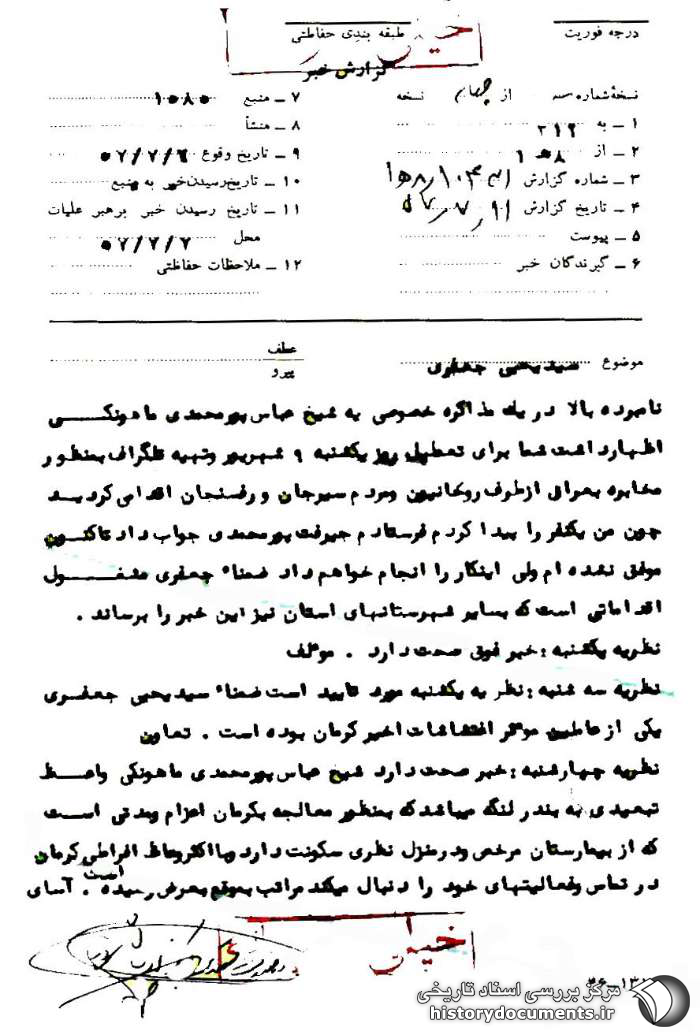 درجه فوریت
طبقه بندی حفاظتی
گزارش خبر
نسخهٔ شماره از چهار نسخه
۱ ــ به ۳۱۲
۲ ــ از
۳ ــ شماره گزارش
۴ ــ تاریخ گزارش
۵ ــ پیوست
۶ ــ گیرندگان خبر
۷ ــ منبع ۱۰۸۰
۸ ــ منشأ
۹ ــ تاریخ وقوع
۱۰ ــ تاریخ رسیدن خبر به منبع
۱۱ ــ تاریخ رسیدن خبر برهبر عملیات
محل ۵۷/۷/۷
۱۲ ــ ملاحظات حفاظتی
موضوع سیدیحیی جعفری
عطف
پیرو
نامبرده بالا در یک مذاکره خصوصی به شیخ عباس پورمحمدی ماهونکی
اظهارداشت شما برای تعطیل روز یکشنبه ۹ شهریور وتهیه تلگراف بمنظور
مخابره بعراق ازطرف روحانیون ومردم سیرجان و رفسنجان اقدامی کردید
چون من یکنفر را پیدا کردم فرستادم جیرفت پورمحمدی جواب داد تاکنون
موفق نشده ام ولی اینکار را انجام خواهم داد ضمناً جعفری مشغول
اقداماتی است که بسایر شهرستانهای استان نیز این خبر را برساند .
نظریه یکشنبه : خبر فوق صحت دارد . موئلف
نظریه سه شنبه : نظریه یکشنبه مورد تایید است ضمناً سیدیحیی جعفری
یکی از عاملین موثر اغتشاشات اخیر کرمان بوده است . تعاون
نظریه چهارشنبه : خبر صحت دارد شیخ عباس پورمحمدی ماهونکی واعظ
تبعیدی به بندر لنگه میباشد که بمنظور معالجه بکرمان اعزام ومدتی است
که از بیمارستان مرخص ودرمنزل نظری سکونت دارد وبا اکثر وعاظ افراطی کرمان
در تماس وفعالیتهای خود را دنبال میکند مراتب بموقع بعرض رسیده است . آسای
مرکز بررسی اسناد تاریخی
historydocuments.ir